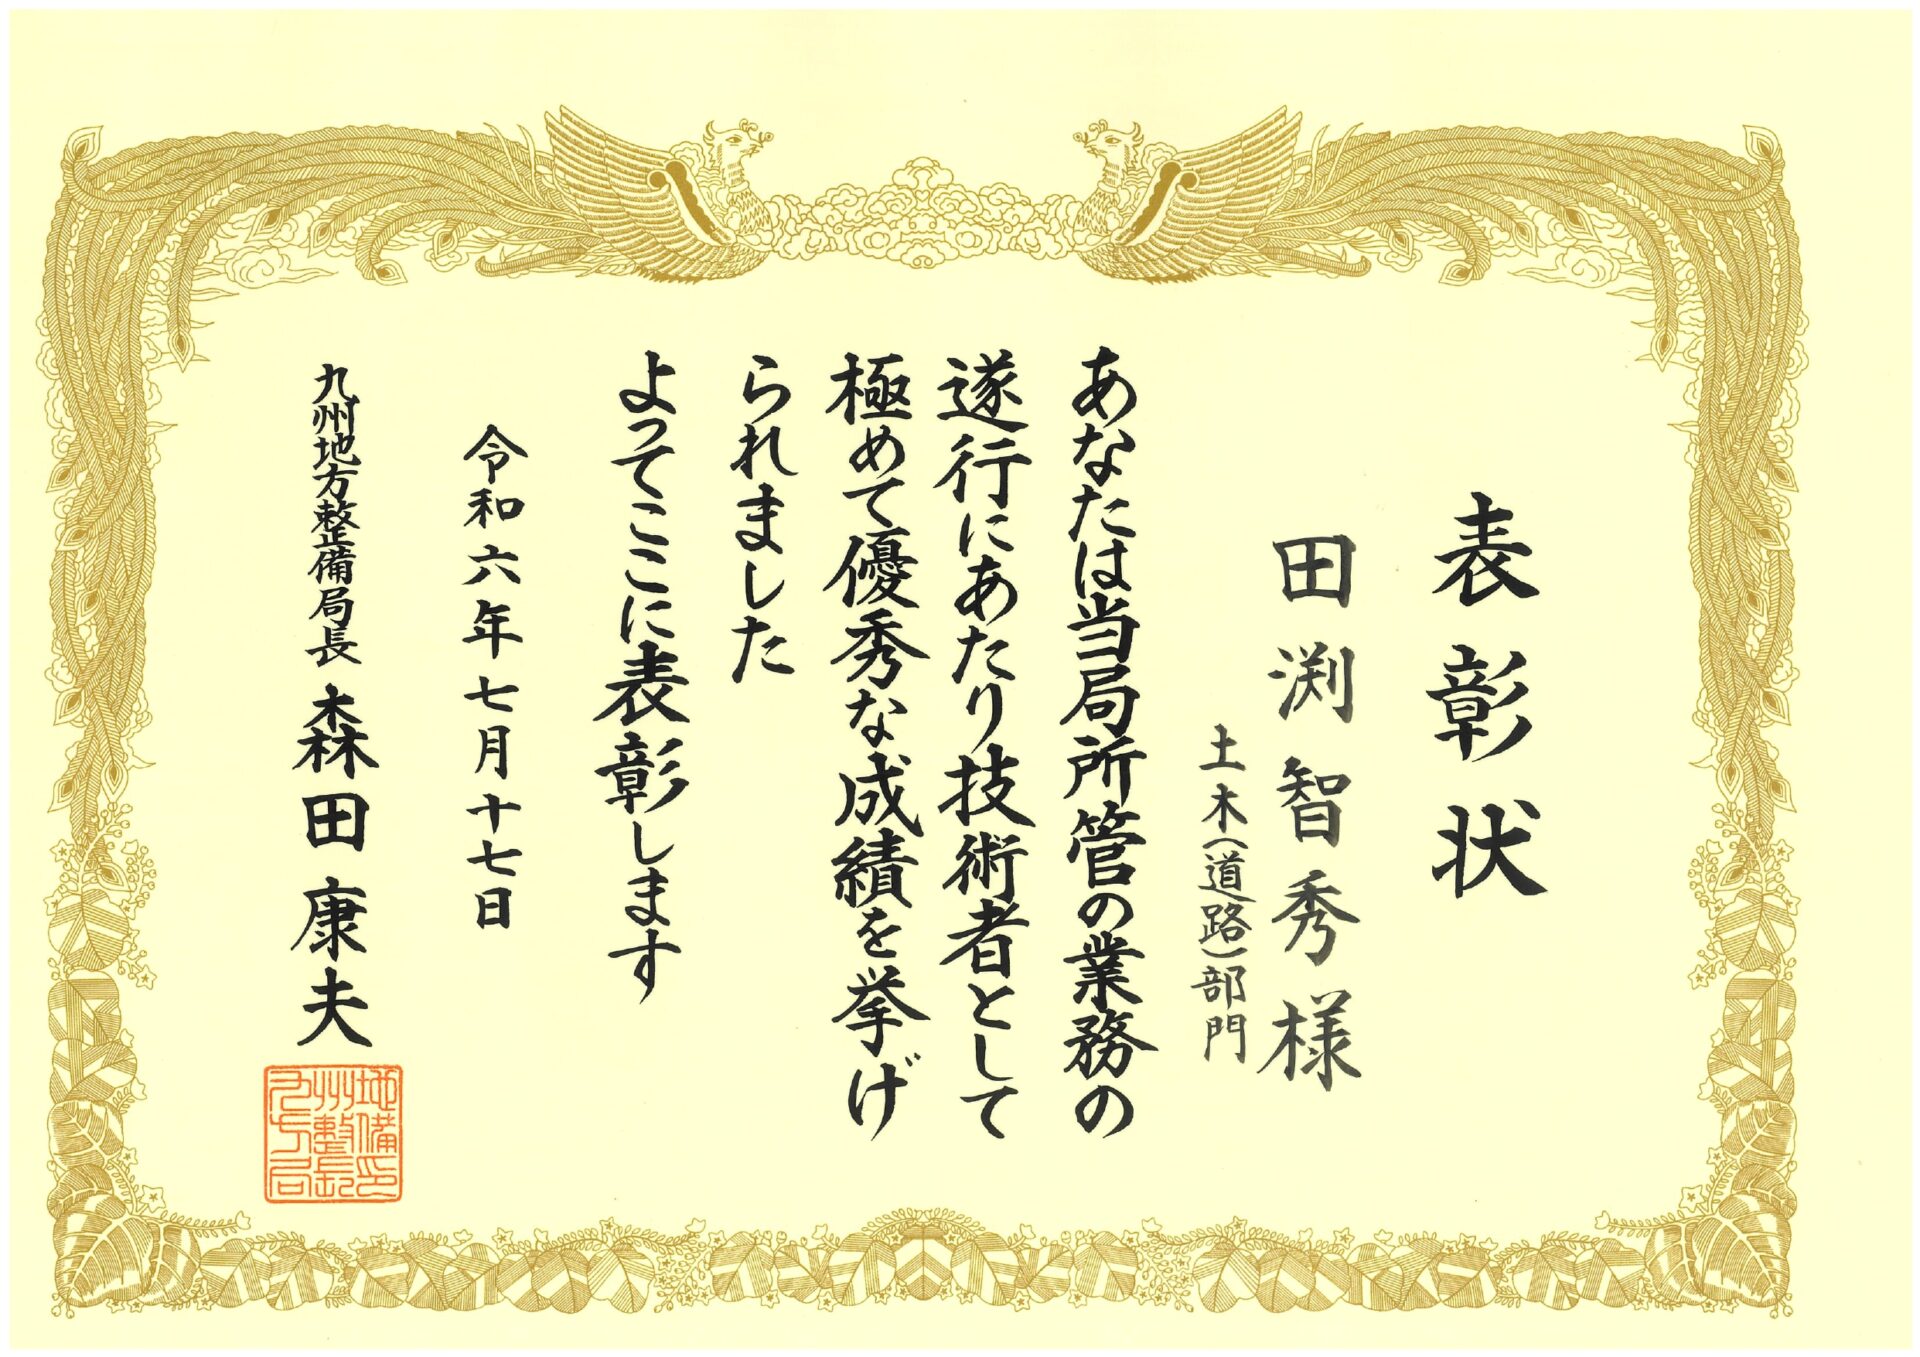 表彰状
田渕智秀様
土木(道路)部門
あなたは当局所管の業務の
遂行にあたり技術者として
極めて優秀な成績を挙げ
られました
よってここに表彰します
令和六年七月十七日
九州地方整備局長 森田康夫
九州地方整備局長印